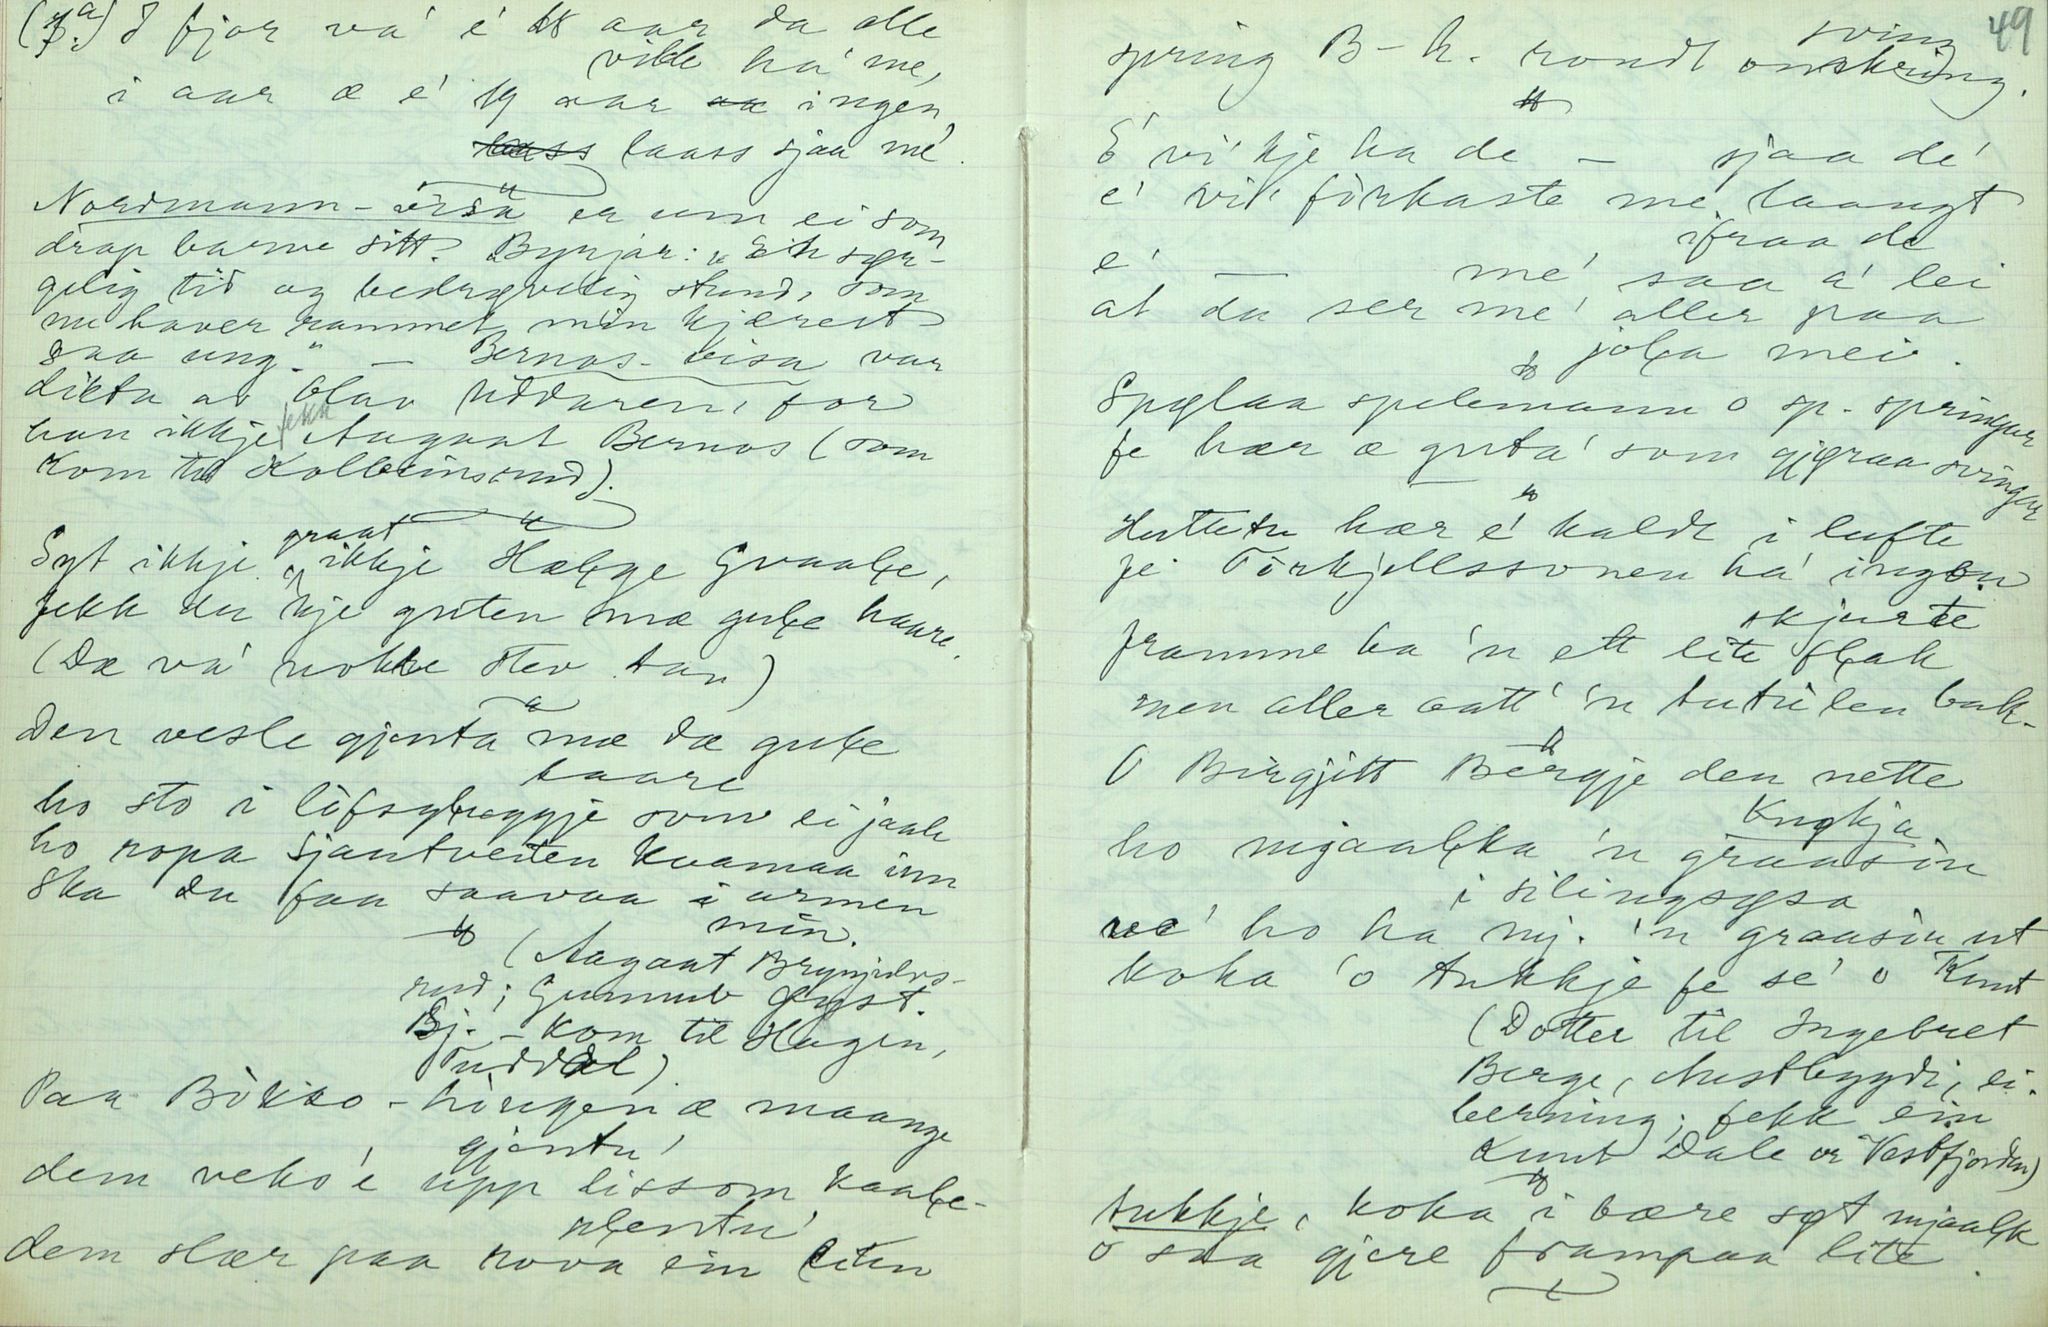 (7.a) I fjor va' é 18 aar da alle
ville ha' me,
i aar æ é' 19 aar ingen
laass sjaa me'.
Nordmann-visa er um ei som
drap barne sitt. Bynjar: "Eik sør-
gelig tid og bedrøvelig stund, som
nu haver rammet min kjærest
saa ung." – Bernos-visa var
dikta av Olav Uddaren, for
han ikkje fekk Aagaat Bernos (som
kom til Kolbeinsrud).
Syt ikkje og graat ikkje Hæljge Gvaaļe,
fekk du kje guten mæ guļe haare.
(Dæ va' nokke stev tau)
Den vesle gjenta mæ dæ guļe
haare
ho sto i lifsybryggje som ei jaak
ho ropa Sjautveiten kvamaa inn
Ska du faa saavaa i armen
min.
(Aagaat Brynjuls-
rud; Gunnulv Øyst.
Bj. – kom til Hagin,
Tuddal)
Paa Bökko-hingen æ maange
gjentu'
dem veks'e upp lissom kaaļe-
pļentu'
dem slær paa nova ein liten
49
spring B – k. rondt omkring.
sving
E' vi' kje ha de – sjaa de'
e' vil förkaste me laangt
ifraa de
e' — me' saa a' lei
at du ser me' aller paa
joļa mei.
Spølaa spelemann o sp. springar
fe hær æ guta' som gjøraa svingar
Huttetu hær e' kaldt i lufte
fe Törkjellssonen ha' ingen
skjurte
framme ha 'n ett lite fļak
men aller aatt' 'n tutulen bak.
O Birgjitt Bergje den nette
Knøkja
ho mjaaļka 'n graasin
i silingsøsa
ve' ho ha mj. 'n graasin ut
koka 'o tukkje fe se' o Knut
(Dotter til Ingebret
Berge, Austbygdi, ei.
berning; fekk ein
Knut Dale or Vestfjorden)
tukkje, koka i bære søt mjaaļk
o saa gjere frampaa lite.